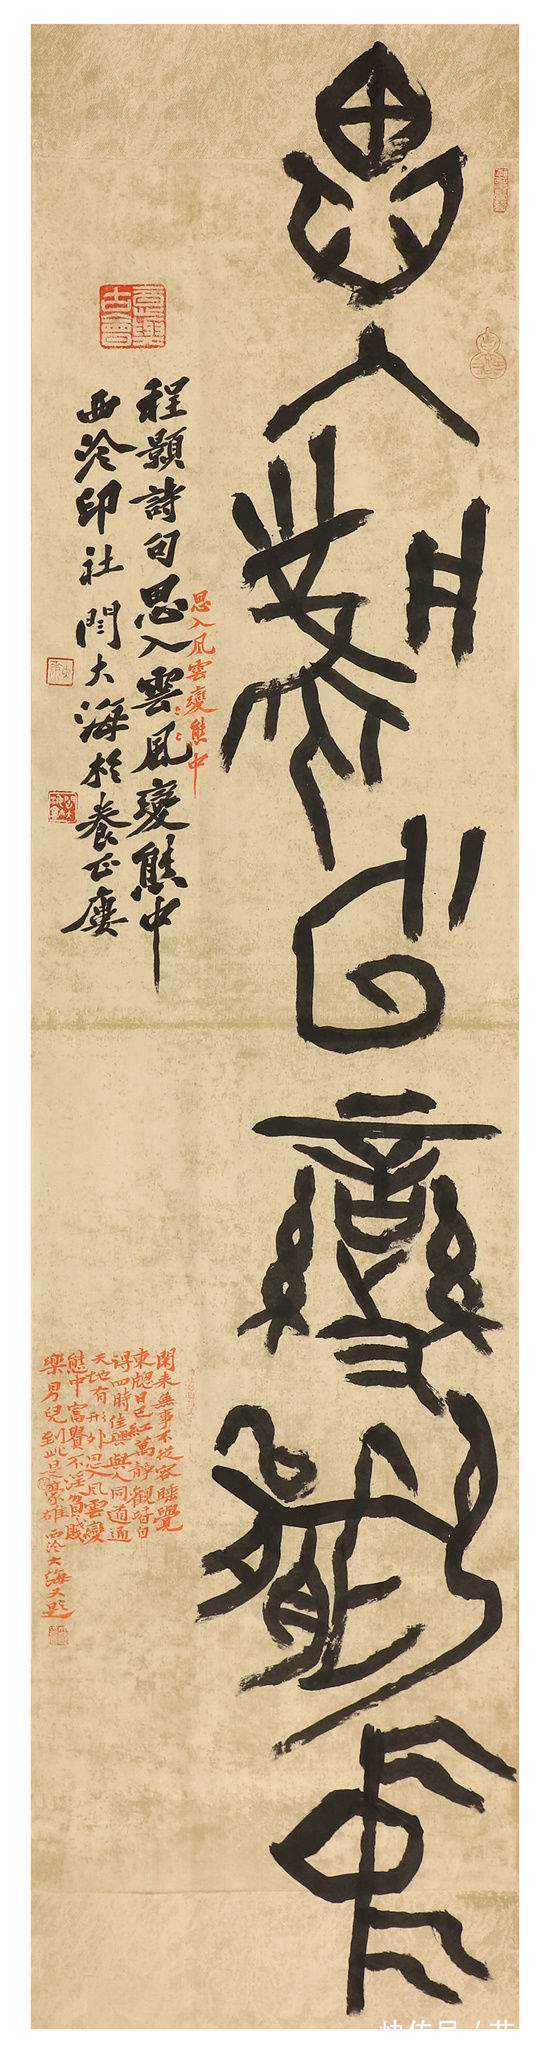 思入風雲變態中
思入風雲變態中
程顥詩句思入雲風變態中
西泠印社閆大海於養正廔
意與古會
閑來無事不從容睡覺
東牕日已紅萬靜觀皆自
得四時佳興與人同道通
天地有形外思入風雲變
態中富貴不淫貧賤
樂男兒到此是豪雄西泠大海又題